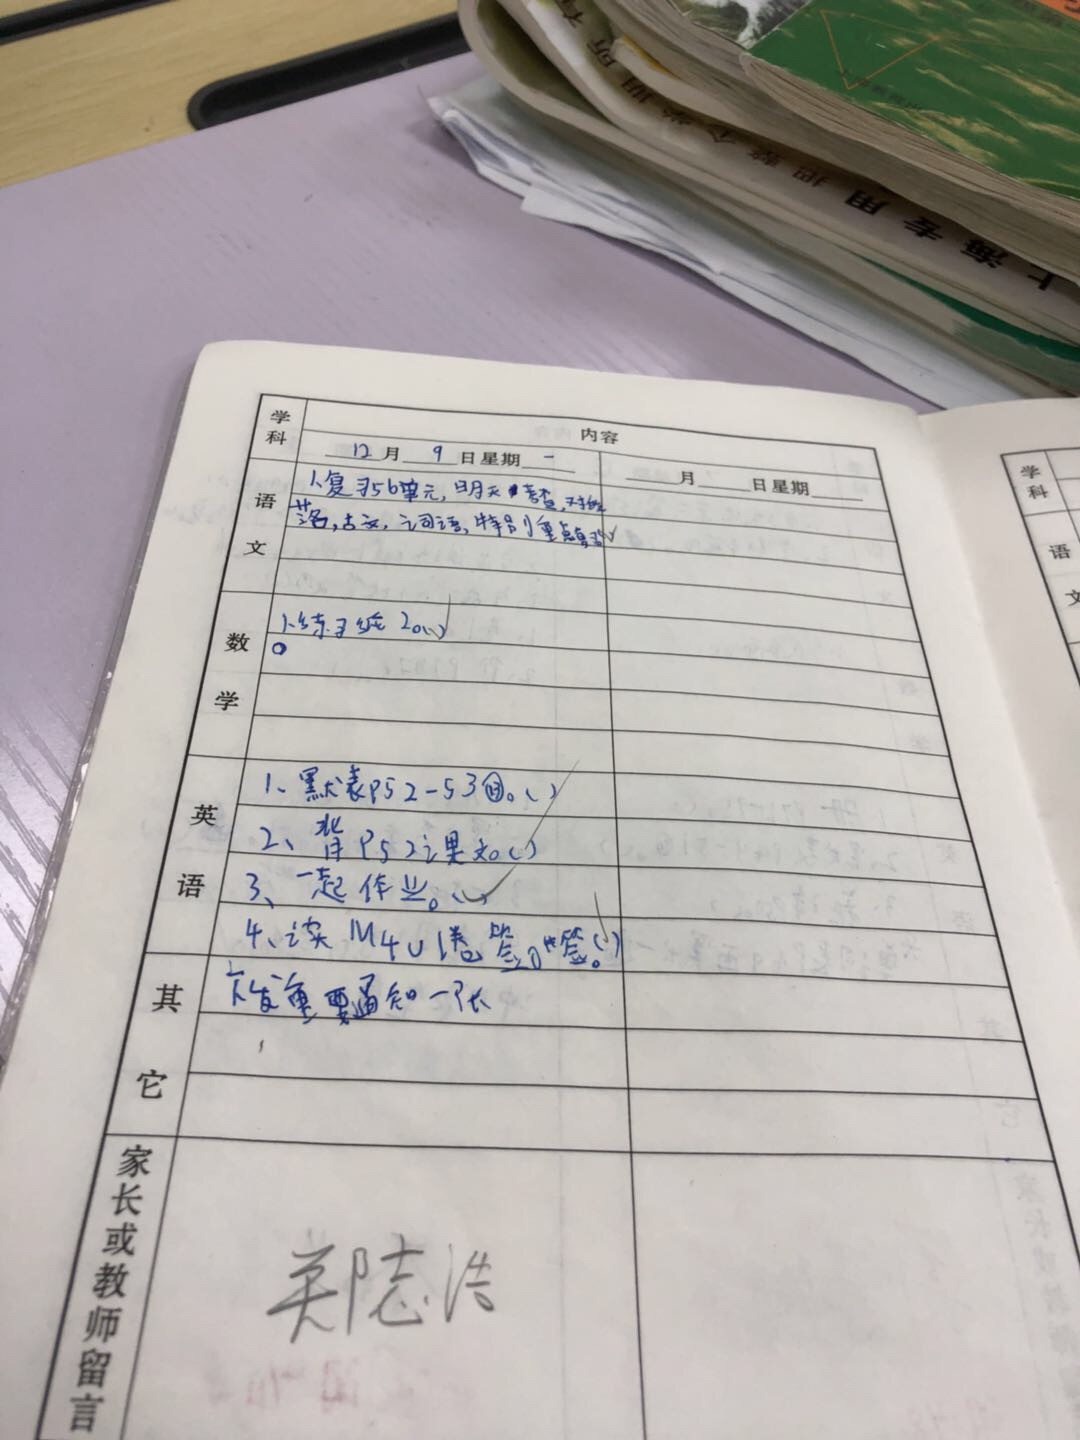 上海专用
把整个学期所有
学科
内容
12月9日星期一
月 日星期
语文
1、复习56单元,明天考查,
古文,词语,特别重点
数学
1、练习 20()
英语
1、默表P52-53。()
2、背P52课文。()
3、一起作业。()
4、读M4U1 签。()
其它
下发重要通知一张
家长或教师留言
郑志浩
学科
语
文